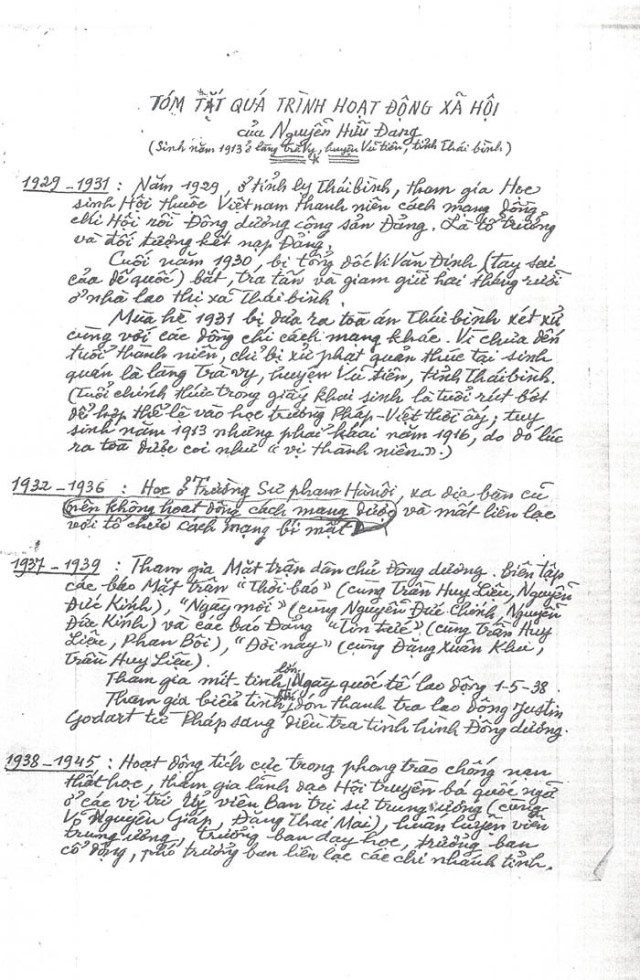 TÓM TẮT QUÁ TRÌNH HOẠT ĐỘNG XÃ HỘI
của Nguyễn Hữu Đang
(Sinh năm 1913 ở làng trà Vy, huyện Vũ tiên, tỉnh Thái bình)
1929 – 1931 : Năm 1929, ở tỉnh lỵ Thái bình, tham gia Học
sinh Hội thuộc Việt nam thanh niên cách mạng đồng
chí Hội rồi Đông dương cộng sản Đảng. Là tổ trưởng
và đối tượng kết nạp Đảng.
Cuối năm 1930, bị tổng đốc Vi Văn Định (tay sai
của đế quốc) bắt, tra tấn và giam giữ hai tháng rưỡi
ở nhà lao thị xã Thái bình.
Mùa hè 1931 bị đưa ra toà án Thái bình xét xử
cùng với các đồng chí cách mạng khác. Vì chưa đến
tuổi thành niên, chỉ bị xử phạt quản thúc tại sinh
quán là làng trà vy, huyện Vũ tiên, tỉnh Thái bình.
(Tuổi chính thức trong giấy khai sinh là tuổi rút bớt
để hợp thể lệ vào học trường Pháp-Việt thời ấy; tuy
sinh năm 1913 nhưng phải khai năm 1916, do đó lúc
ra toà được coi như "vị thành niên".)
1932 – 1936 : Học ở Trường Sư phạm Hà nội, xa địa bàn cũ
nên không hoạt động cách mạng được và mất liên lạc
với tổ chức cách mạng bí mật
1937 – 1939 : Tham gia Mặt trận dân chủ Đông dương. biên tập
các báo Mặt trận "Thời báo" (cùng Trần Huy Liệu, Nguyễn
Đức Kính), "Ngày mới" (cùng Nguyễn Đức Chính, Nguyễn
Đức Kính) và các báo Đảng "Tin tức" (cùng Trần Huy
Liệu, Phan Bôi), "Đời nay" (cùng Đặng Xuân Khu,
Trần Huy Liệu).
Tham gia mít-tinh lớn Ngày quốc tế lao động 1-5-38
Tham gia biểu tình đón thanh tra lao động Justin
Godart từ Pháp sang điều tra tình hình Đông dương.
1938 – 1945 : Hoạt động tích cực trong phong trào chống nạn
thất học, tham gia lãnh đạo Hội truyền bá quốc ngữ
ở các vị trí uỷ viên Ban trị sự trung ương (cùng
Võ Nguyên Giáp, Đặng Thai Mai), huấn luyện viên
trung ương, trưởng ban dạy học, trưởng ban
cổ động, phó trưởng ban liên lạc các chi nhánh tỉnh.